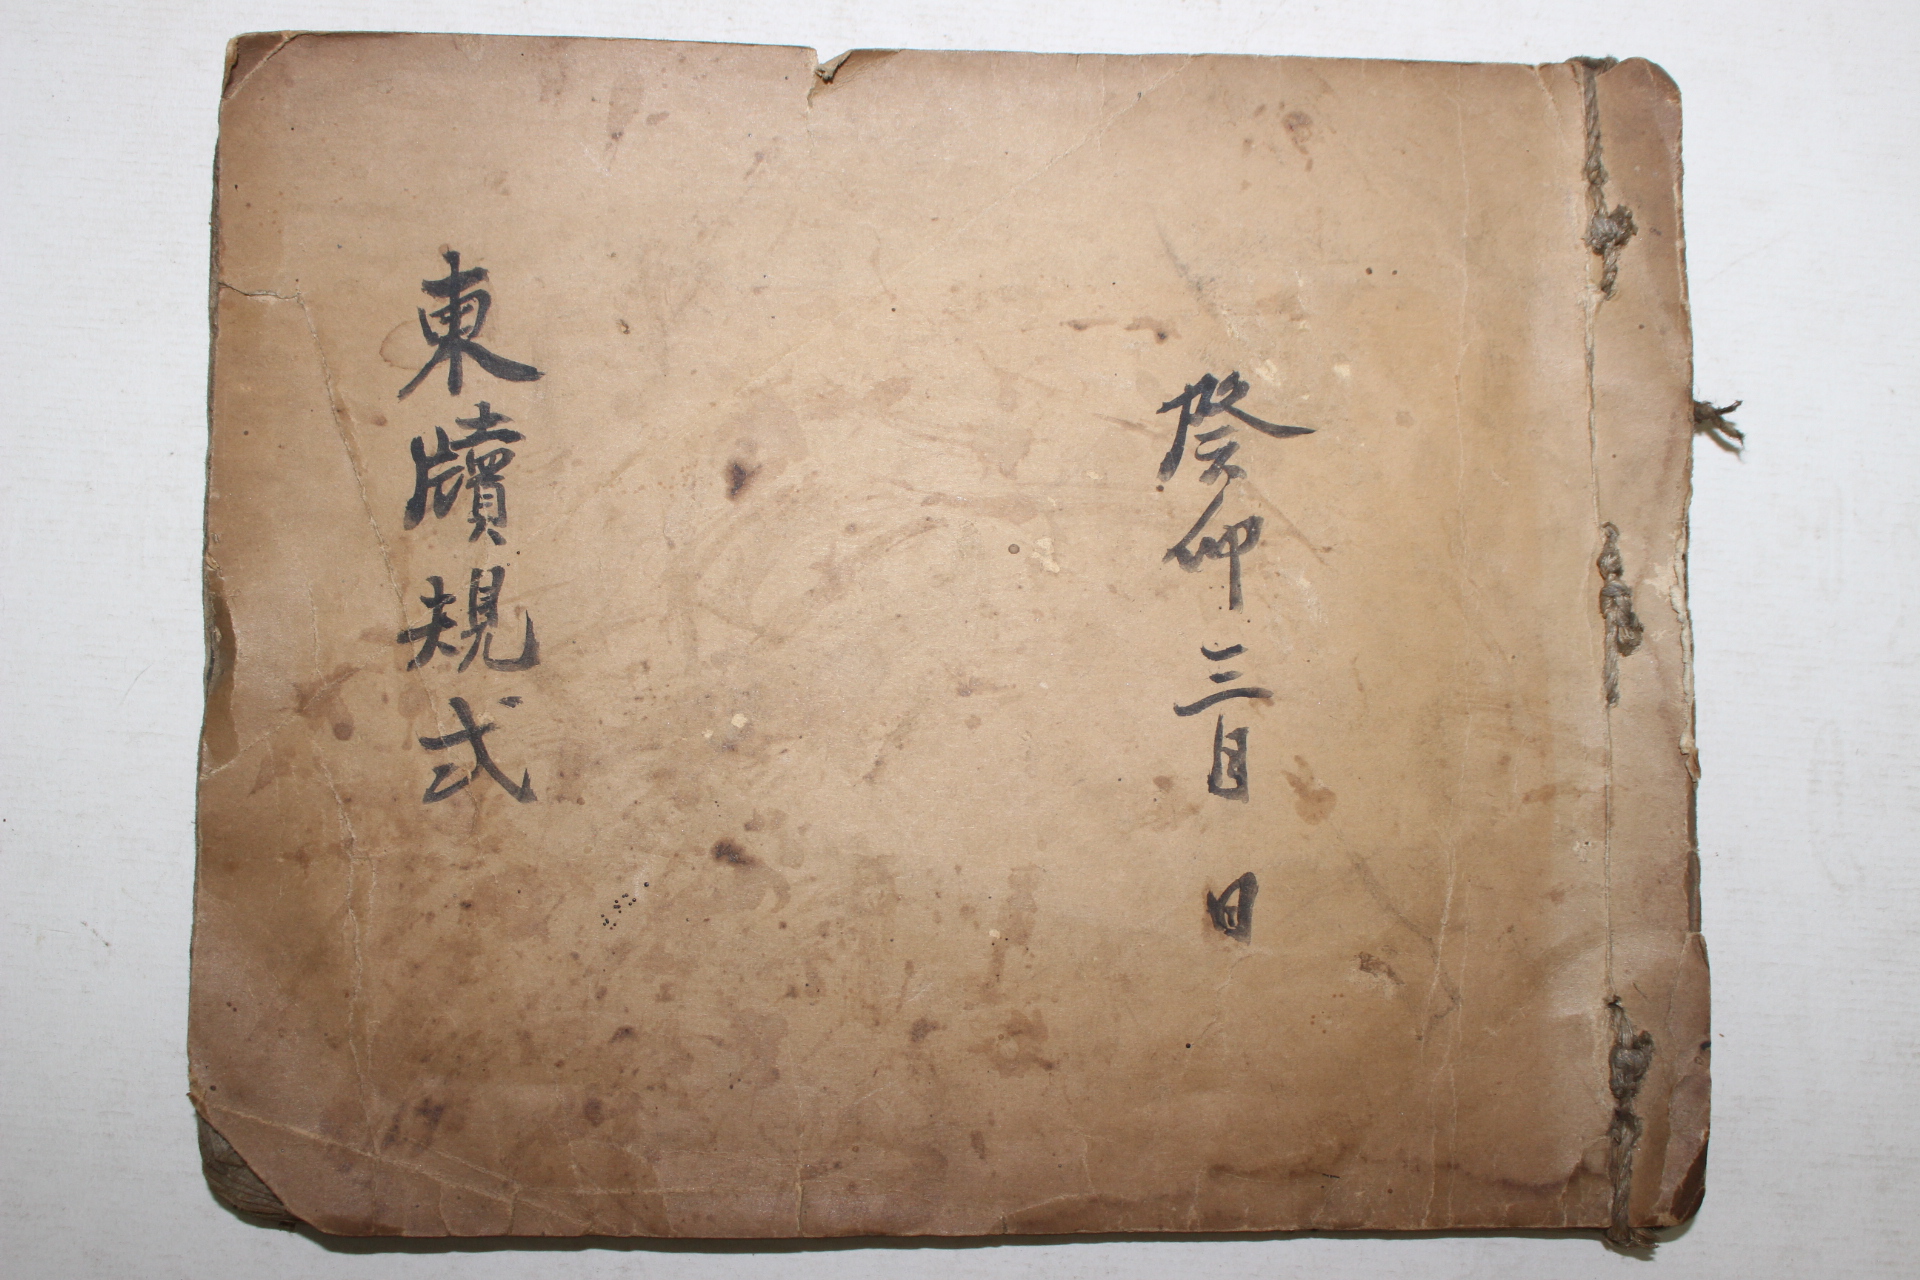 癸卯三月 日
東牘規式